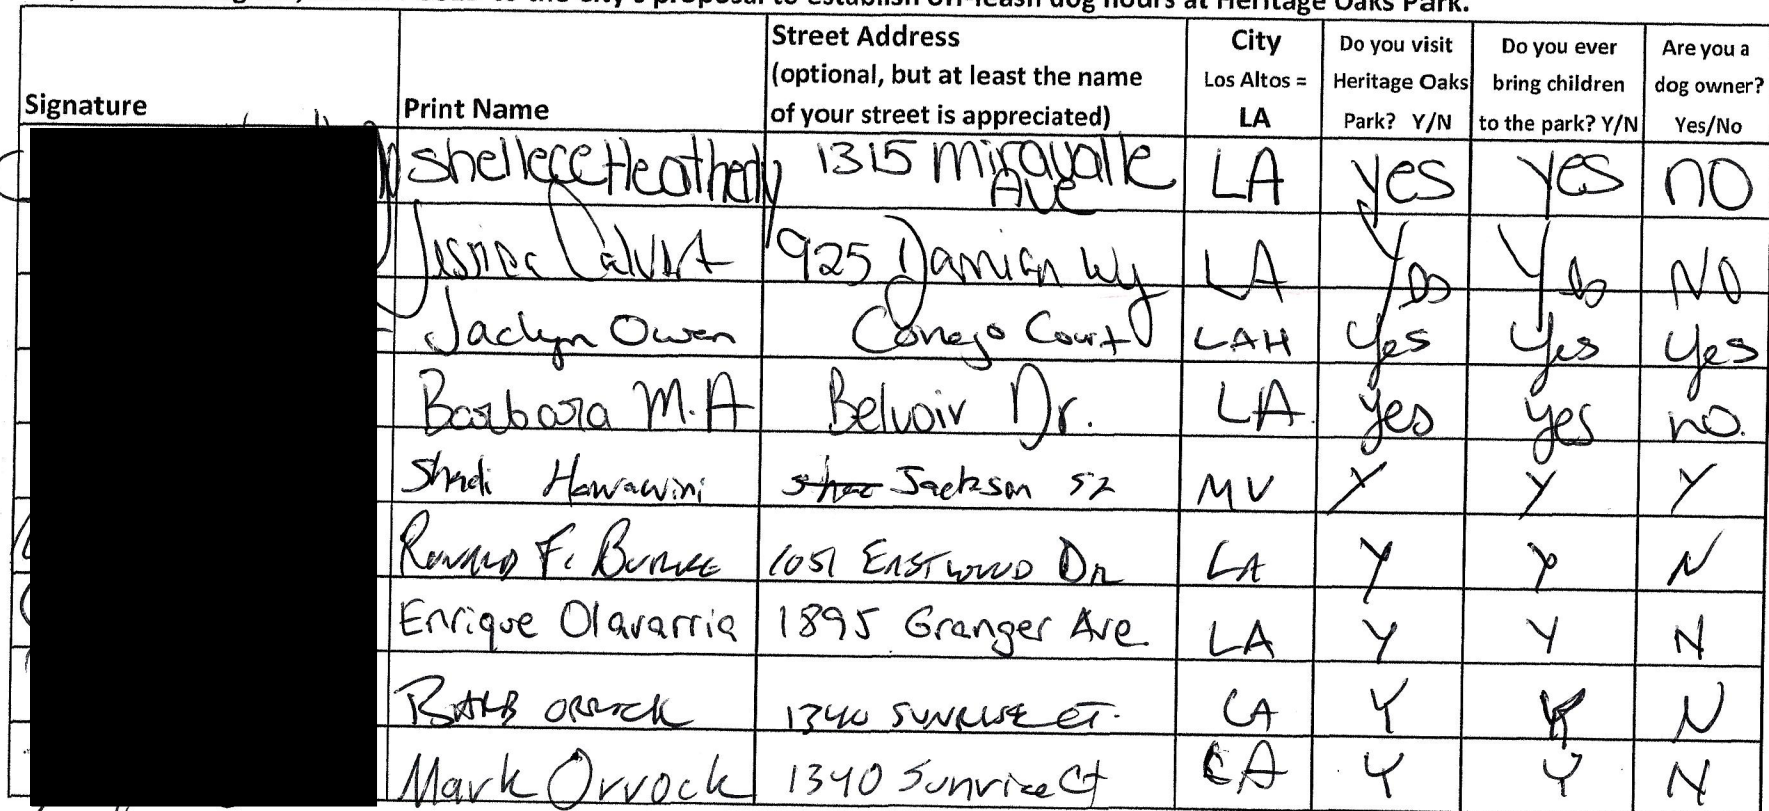 to the City's proposal to establish off-leash dog hours at Heritage Oaks Park.
Signature
Print Name
Street Address
(optional, but at least the name
of your street is appreciated)
City
Los Altos =
LA
Do you visit
Heritage Oaks
Park? Y/N
Do you ever
bring children
to the park? Y/N
Are you a
dog owner?
Yes/No
Shellece Heatherly 1315 Miravalle Ave LA yes yes no
Jessica Calvert 925 Damian Wy LA Yes Yes NO
Jaclyn Owen Conejo Court LAH Yes Yes Yes
Barbara M.A Belvoir Dr. LA. yes yes no.
Shadi Hawawini Jackson St MV Y Y Y
Ronald F. Burke 1051 Eastwood Dr LA Y Y N
Enrique Olavarria 1895 Granger Ave LA Y Y N
Barb Orrock 1340 Sunrise Ct. CA Y Y N
Mark Orrock 1340 Sunrise Ct CA Y Y N